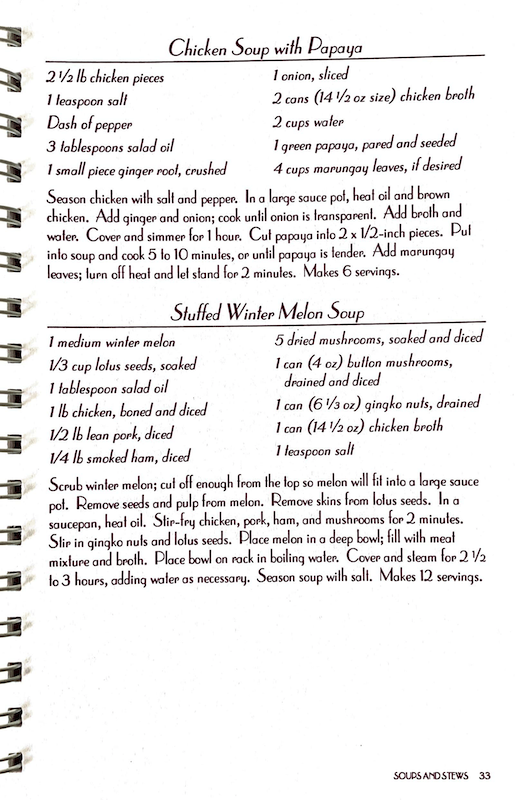 Chicken Soup with Papaya
2 1/2 lb chicken pieces
1 teaspoon salt
Dash of pepper
3 tablespoons salad oil
1 small piece ginger root, crushed
1 onion, sliced
2 cans (14 1/2 oz size) chicken broth
2 cups water
1 green papaya, pared and seeded
4 cups marungay leaves, if desired
Season chicken with salt and pepper. In a large sauce pot, heat oil and brown
chicken. Add ginger and onion; cook until onion is transparent. Add broth and
water. Cover and simmer for 1 hour. Cut papaya into 2 x 1/2-inch pieces. Put
into soup and cook 5 to 10 minutes, or until papaya is tender. Add marungay
leaves; turn off heat and let stand for 2 minutes. Makes 6 servings.
Stuffed Winter Melon Soup
1 medium winter melon
1/3 cup lotus seeds, soaked
1 tablespoon salad oil
1 lb chicken, boned and diced
1/2 lb lean pork, diced
1/4 lb smoked ham, diced
5 dried mushrooms, soaked and diced
1 can (4 oz) button mushrooms,
drained and diced
1 can (6 1/3 oz) gingko nuts, drained
1 can (14 1/2 oz) chicken broth
1 teaspoon salt
Scrub winter melon; cut off enough from the top so melon will fit into a large sauce
pot. Remove seeds and pulp from melon. Remove skins from lotus seeds. In a
saucepan, heat oil. Stir-fry chicken, pork, ham, and mushrooms for 2 minutes.
Stir in gingko nuts and lotus seeds. Place melon in a deep bowl; fill with meat
mixture and broth. Place bowl on rack in boiling water. Cover and steam for 2 1/2
to 3 hours, adding water as necessary. Season soup with salt. Makes 12 servings.
SOUPS AND STEWS 33